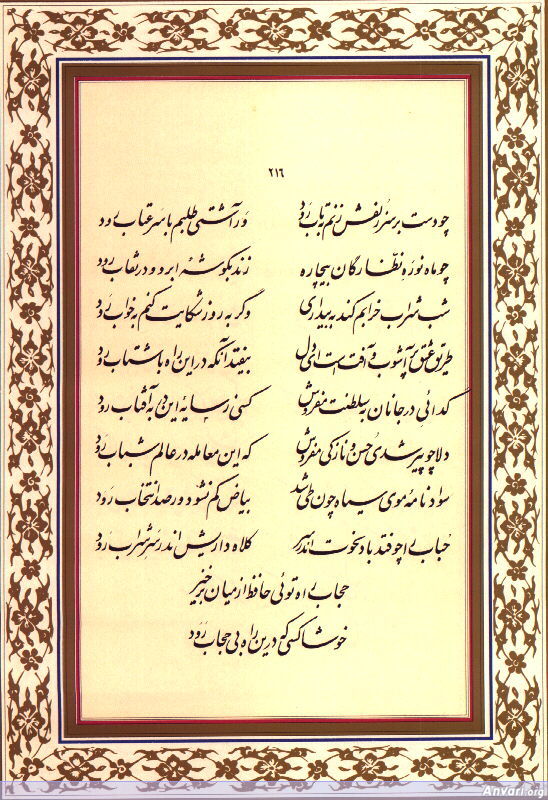 ۲۱۶
چو دست بر سر زلفش زنم بتاب رود ور آشتی طلبم با سر عتاب رود
چو ماه نو ره نظارگان بیچاره زند بگوشهٔ ابرو و در نقاب رود
شب شراب خرابم کند به بیداری وگر به روز شکایت کنم به خواب رود
طریق عشق پر آشوب و آفتست ای دل بیفتد آنکه در این راه با شتاب رود
گدائی در جانان به سلطنت مفروش کسی ز سایهٔ این در به آفتاب رود
دلا چو پیر شدی حسن و نازکی مفروش که این معامله در عالم شباب رود
سواد نامهٔ موی سیاه چون طی شد بیاض کم نشود ور صد انتخاب رود
حباب را چو فتد باد نخوت اندر سر کلاه داریش اندر سر شراب رود
حجاب راه توئی حافظ از میان برخیز
خوشا کسی که درین راه بی حجاب رود
Anvari.org